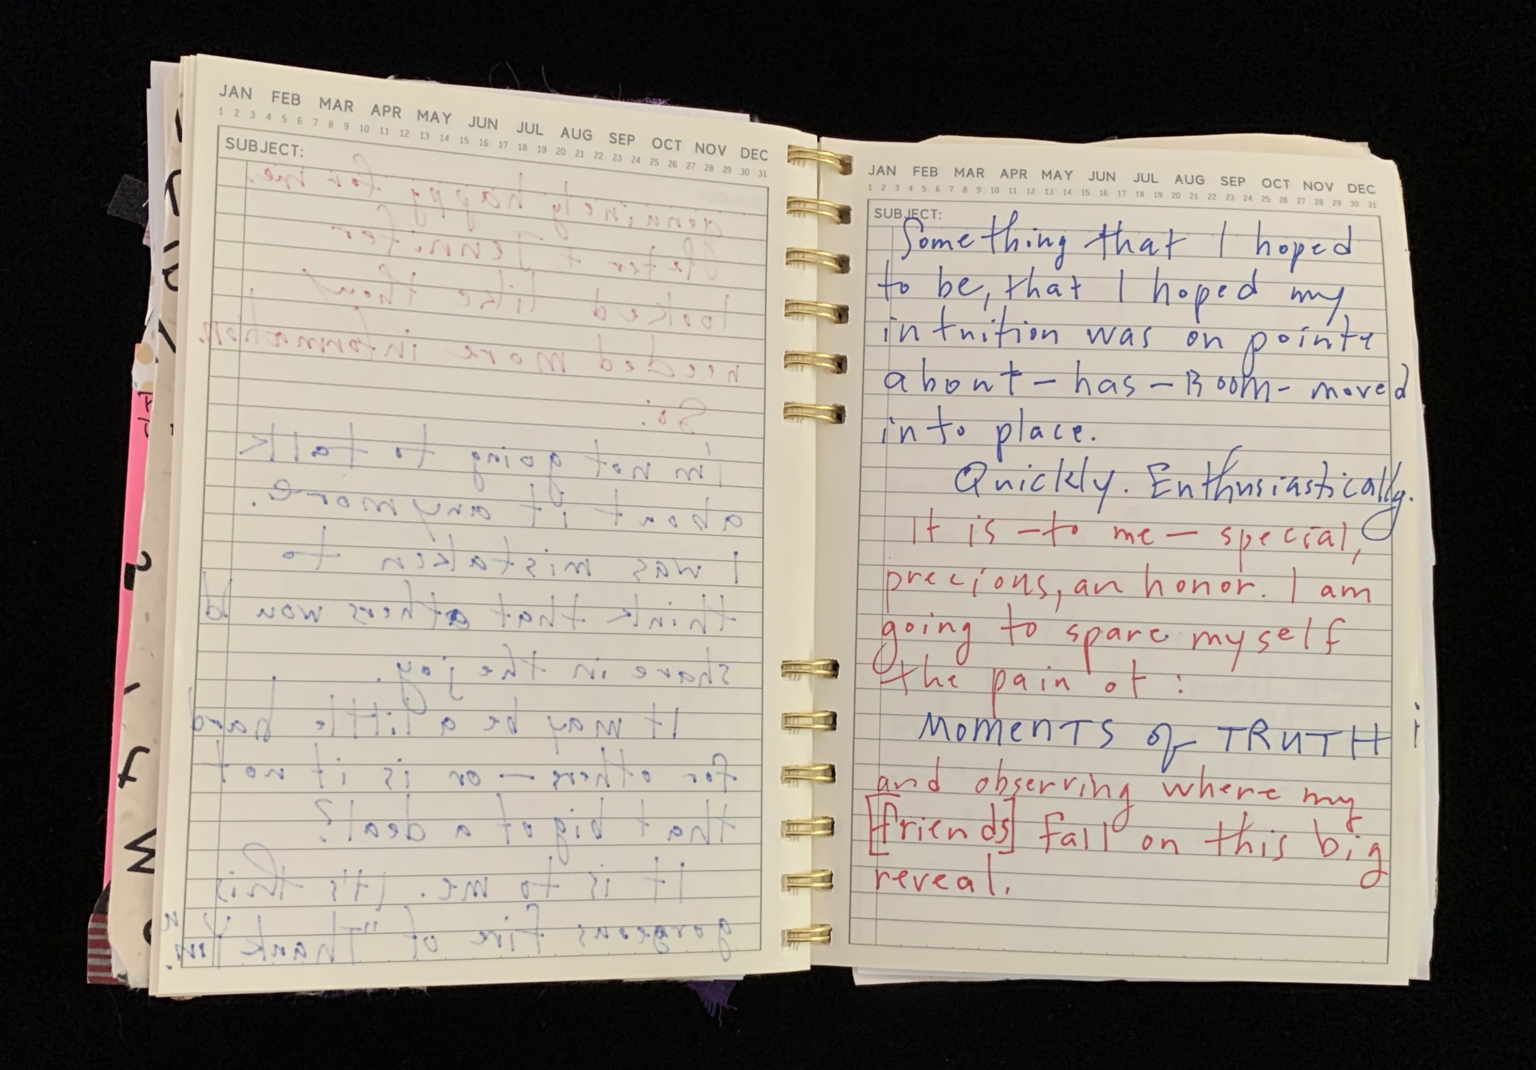 JAN FEB MAR APR MAY JUN JUL AUG SEP OCT NOV DEC
1 2 3 4 5 6 7 8 9 10 11 12 13 14 15 16 17 18 19 20 21 22 23 24 25 26 27 28 29 30 31
SUBJECT:
genuinely happy for me.
+ Jennifer
looked like they
needed more information.
So:
I'm not going to talk
about it anymore.
I was mistaken to
think that others would
share in the joy.
It may be a little hard
for others — or is it not
that big of a deal?
It is to me. It's this
gorgeous fire of "Thank You
JAN FEB MAR APR MAY JUN JUL AUG SEP OCT NOV DEC
1 2 3 4 5 6 7 8 9 10 11 12 13 14 15 16 17 18 19 20 21 22 23 24 25 26 27 28 29 30 31
SUBJECT:
Something that I hoped
to be, that I hoped my
intuition was on pointe
about — has — BOOM — moved
into place.
Quickly. Enthusiastically.
It is — to me — special,
precious, an honor. I am
going to spare myself
the pain of:
MOMENTS of TRUTH
and observing where my
[friends] fall on this big
reveal.